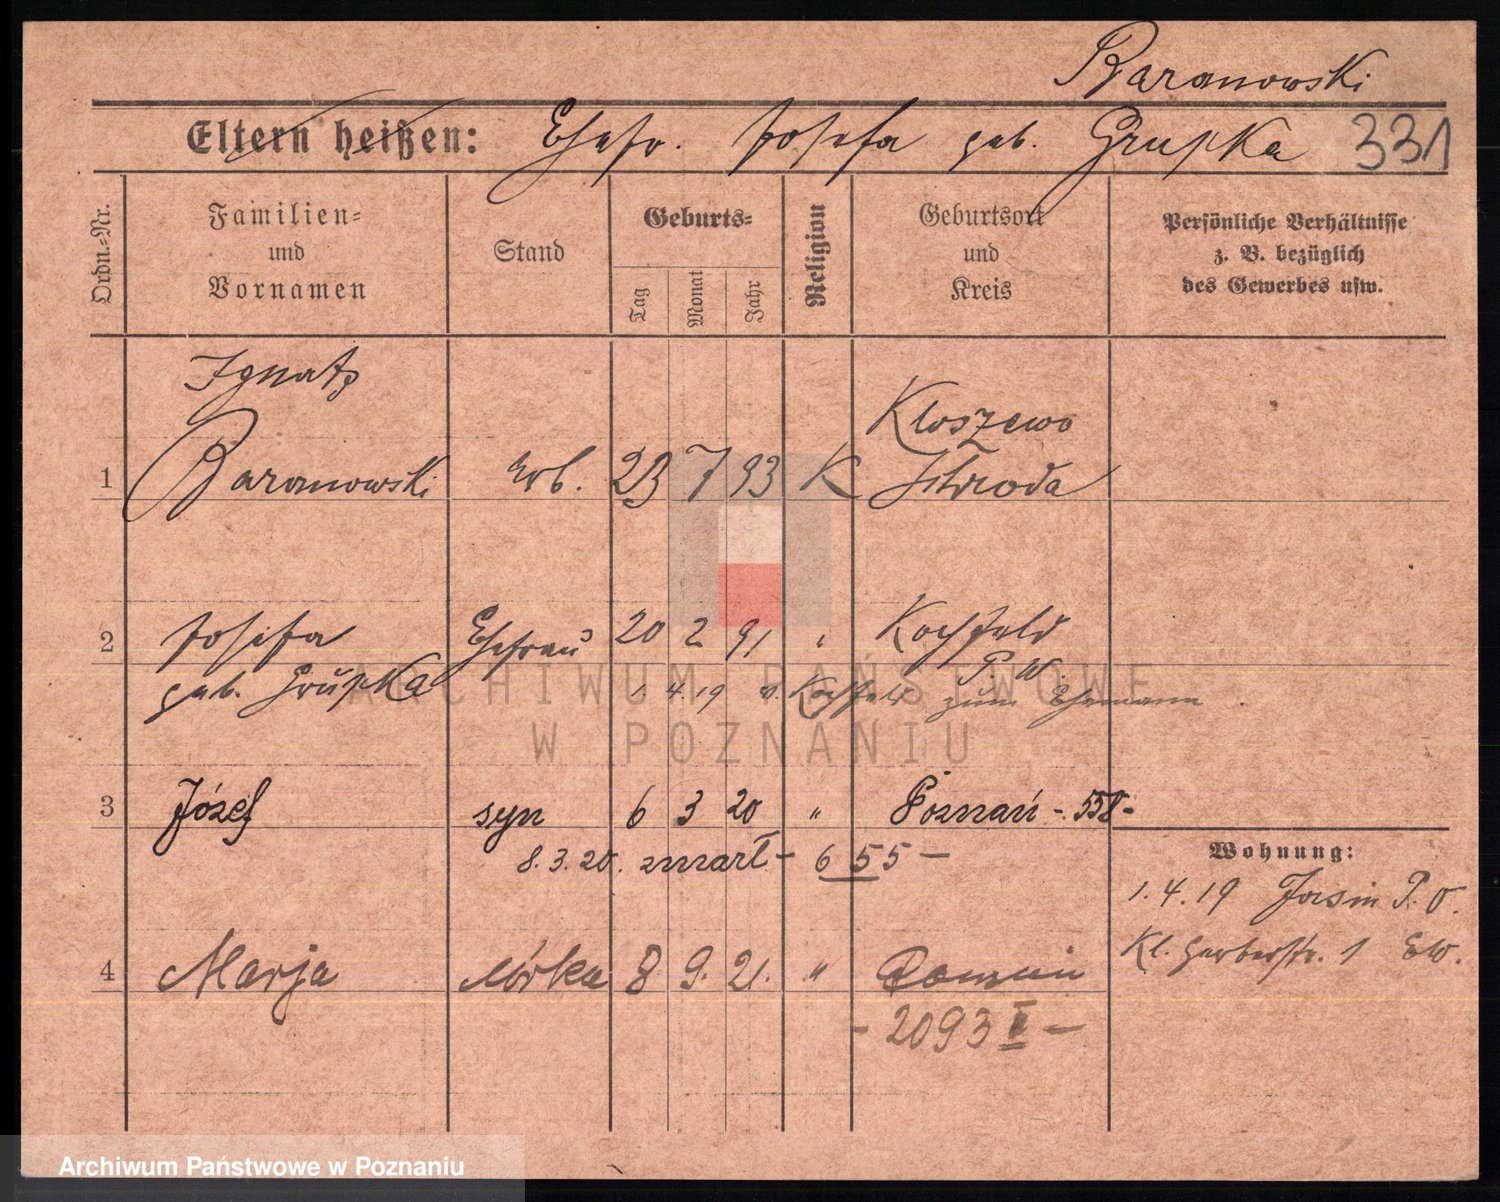 Baranowski
Eltern heißen: Ehefr. Josefa geb. Grupka 331
Ordn.-Nr.
Familien- und Vornamen
Stand
Geburts-
Tag Monat Jahr
Religion
Geburtsort und Kreis
Persönliche Verhältnisse
z. B. bezüglich
des Gewerbes usw.
Ignatz Kloszewo
1 Baranowski Arb. 23 7 93 K Schroda
2 Josefa Ehefrau 20 2 91 " Kochfeld
P. W.
geb. Grupka 1. 4. 19 v. Kochfeld zum Ehemann
ARCHIWUM PAŃSTWOWE
W POZNANIU
3 Józef syn 6 3 20 " Poznań - 558 -
8. 3. 20. zmarł - 655 -
Wohnung:
1. 4. 19 Jasin P. O.
Kl. Gerberstr. 1 EW.
4 Marja córka 8 9. 21. " Poznań
- 2093 I -
Archiwum Państwowe w Poznaniu